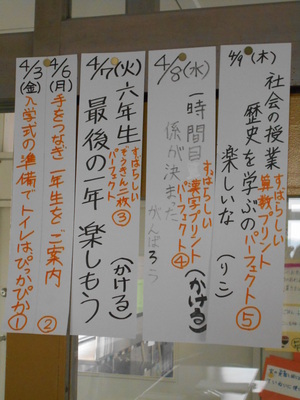 4/3(金)
入学式の準備でトイレはぴっかぴか①
4/6(月)
手をつなぎ一年生をご案内
②
4/7(火)
六年生
最後の一年 楽しもう
(かける)
すばらしい
パーフェクト
③
4/8(水)
一時間目
係が決まった
がんばろう
(かける)
すばらしい
漢字プリント
パーフェクト
④
4/9(木)
社会の授業
歴史を学ぶの
楽しいな
(りこ)
すばらしい
算数プリント
パーフェクト
⑤